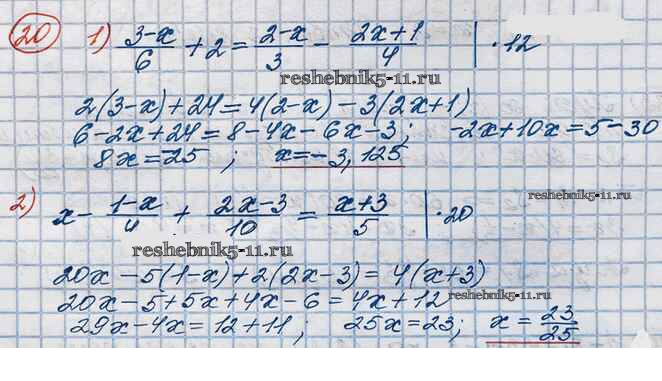 20 1) (3-x)/6 + 2 = (2-x)/3 - (2x+1)/4 | ·12
reshebnik5-11.ru
2(3-x)+24=4(2-x)-3(2x+1)
6-2x+24=8-4x-6x-3; -2x+10x=5-30
8x=-25 ; x=-3,125
2) x - (1-x)/4 + (2x-3)/10 = (x+3)/5 | ·20
reshebnik5-11.ru
reshebnik5-11.ru
20x-5(1-x)+2(2x-3)=4(x+3)
20x-5+5x+4x-6=4x+12
reshebnik5-11.ru
29x-4x=12+11; 25x=23; x=23/25